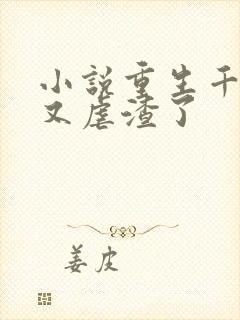 小说重生千
又虐渣了
姜皮